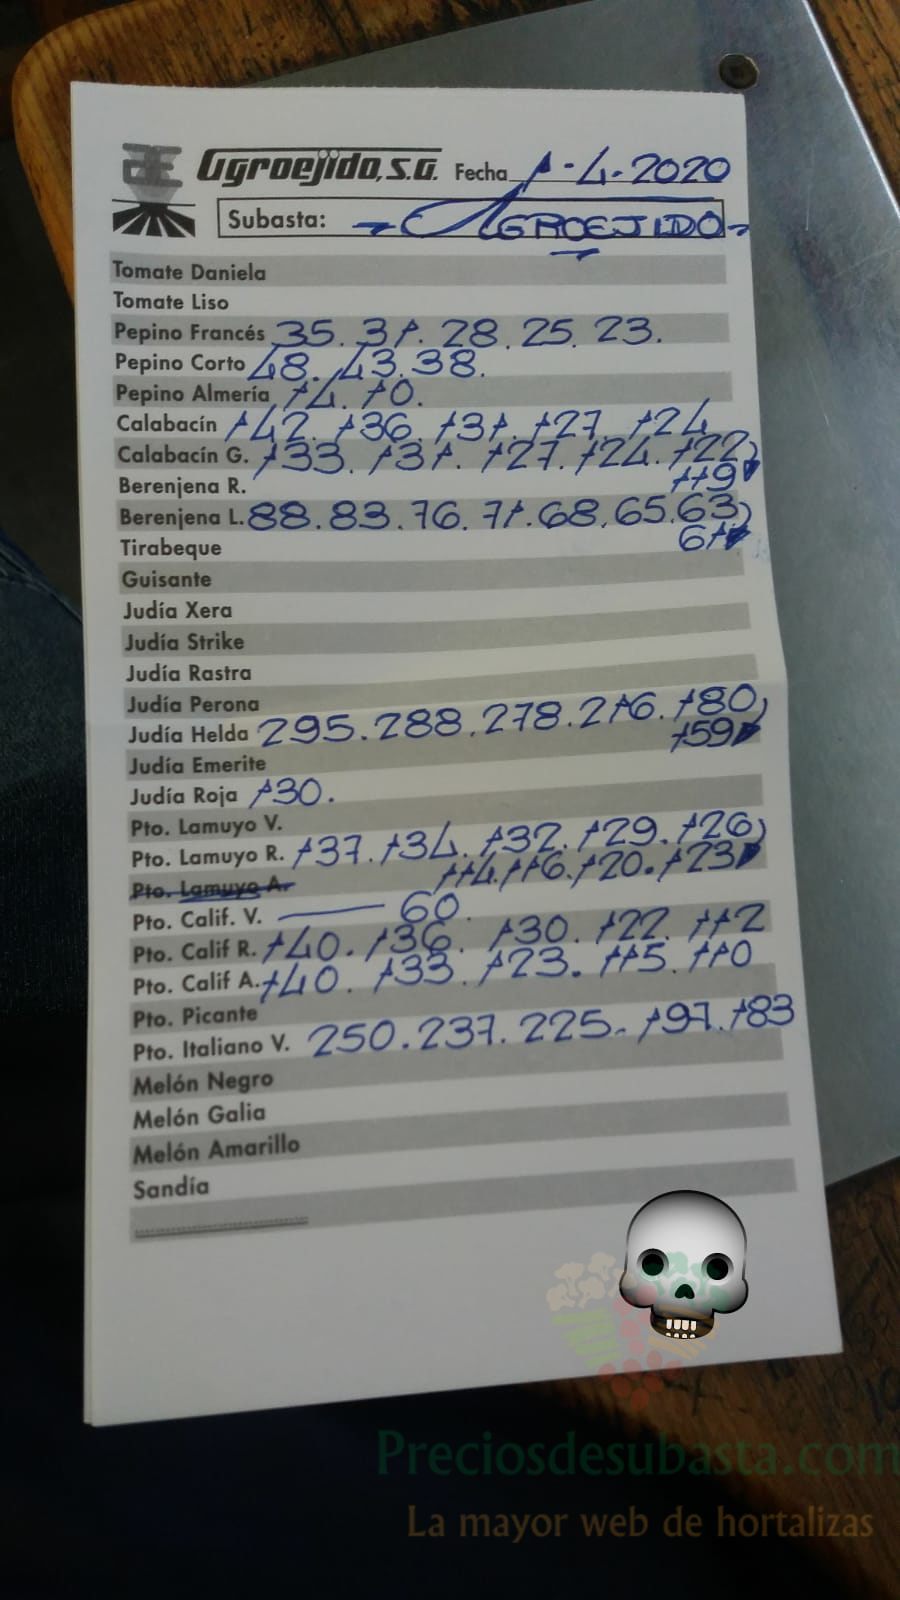 Agroejido, S.A. Fecha 1-4-2020
Subasta: -AGROEJIDO-
Tomate Daniela
Tomate Liso
Pepino Francés 35. 31. 28. 25. 23.
Pepino Corto 48. 43. 38.
Pepino Almería 14. 10.
Calabacín 142. 136. 131. 127. 124
Calabacín G. 133. 131. 127. 124. 122)
Berenjena R. 119
Berenjena L. 88. 83. 76. 71. 68. 65. 63)
Tirabeque 61
Guisante
Judía Xera
Judía Strike
Judía Rastra
Judía Perona
Judía Helda 295. 288. 278. 216. 180)
Judía Emerite 159
Judía Roja 130.
Pto. Lamuyo V.
Pto. Lamuyo R. 137. 134. 132. 129. 126)
Pto. Lamuyo A. 114. 116. 120. 123
Pto. Calif. V. — 60.
Pto. Calif R. 140. 136. 130. 122. 112
Pto. Calif A. 140. 133. 123. 115. 110
Pto. Picante
Pto. Italiano V. 250. 237. 225. 197. 183
Melón Negro
Melón Galia
Melón Amarillo
Sandía
Preciosdesubasta.com
La mayor web de hortalizas